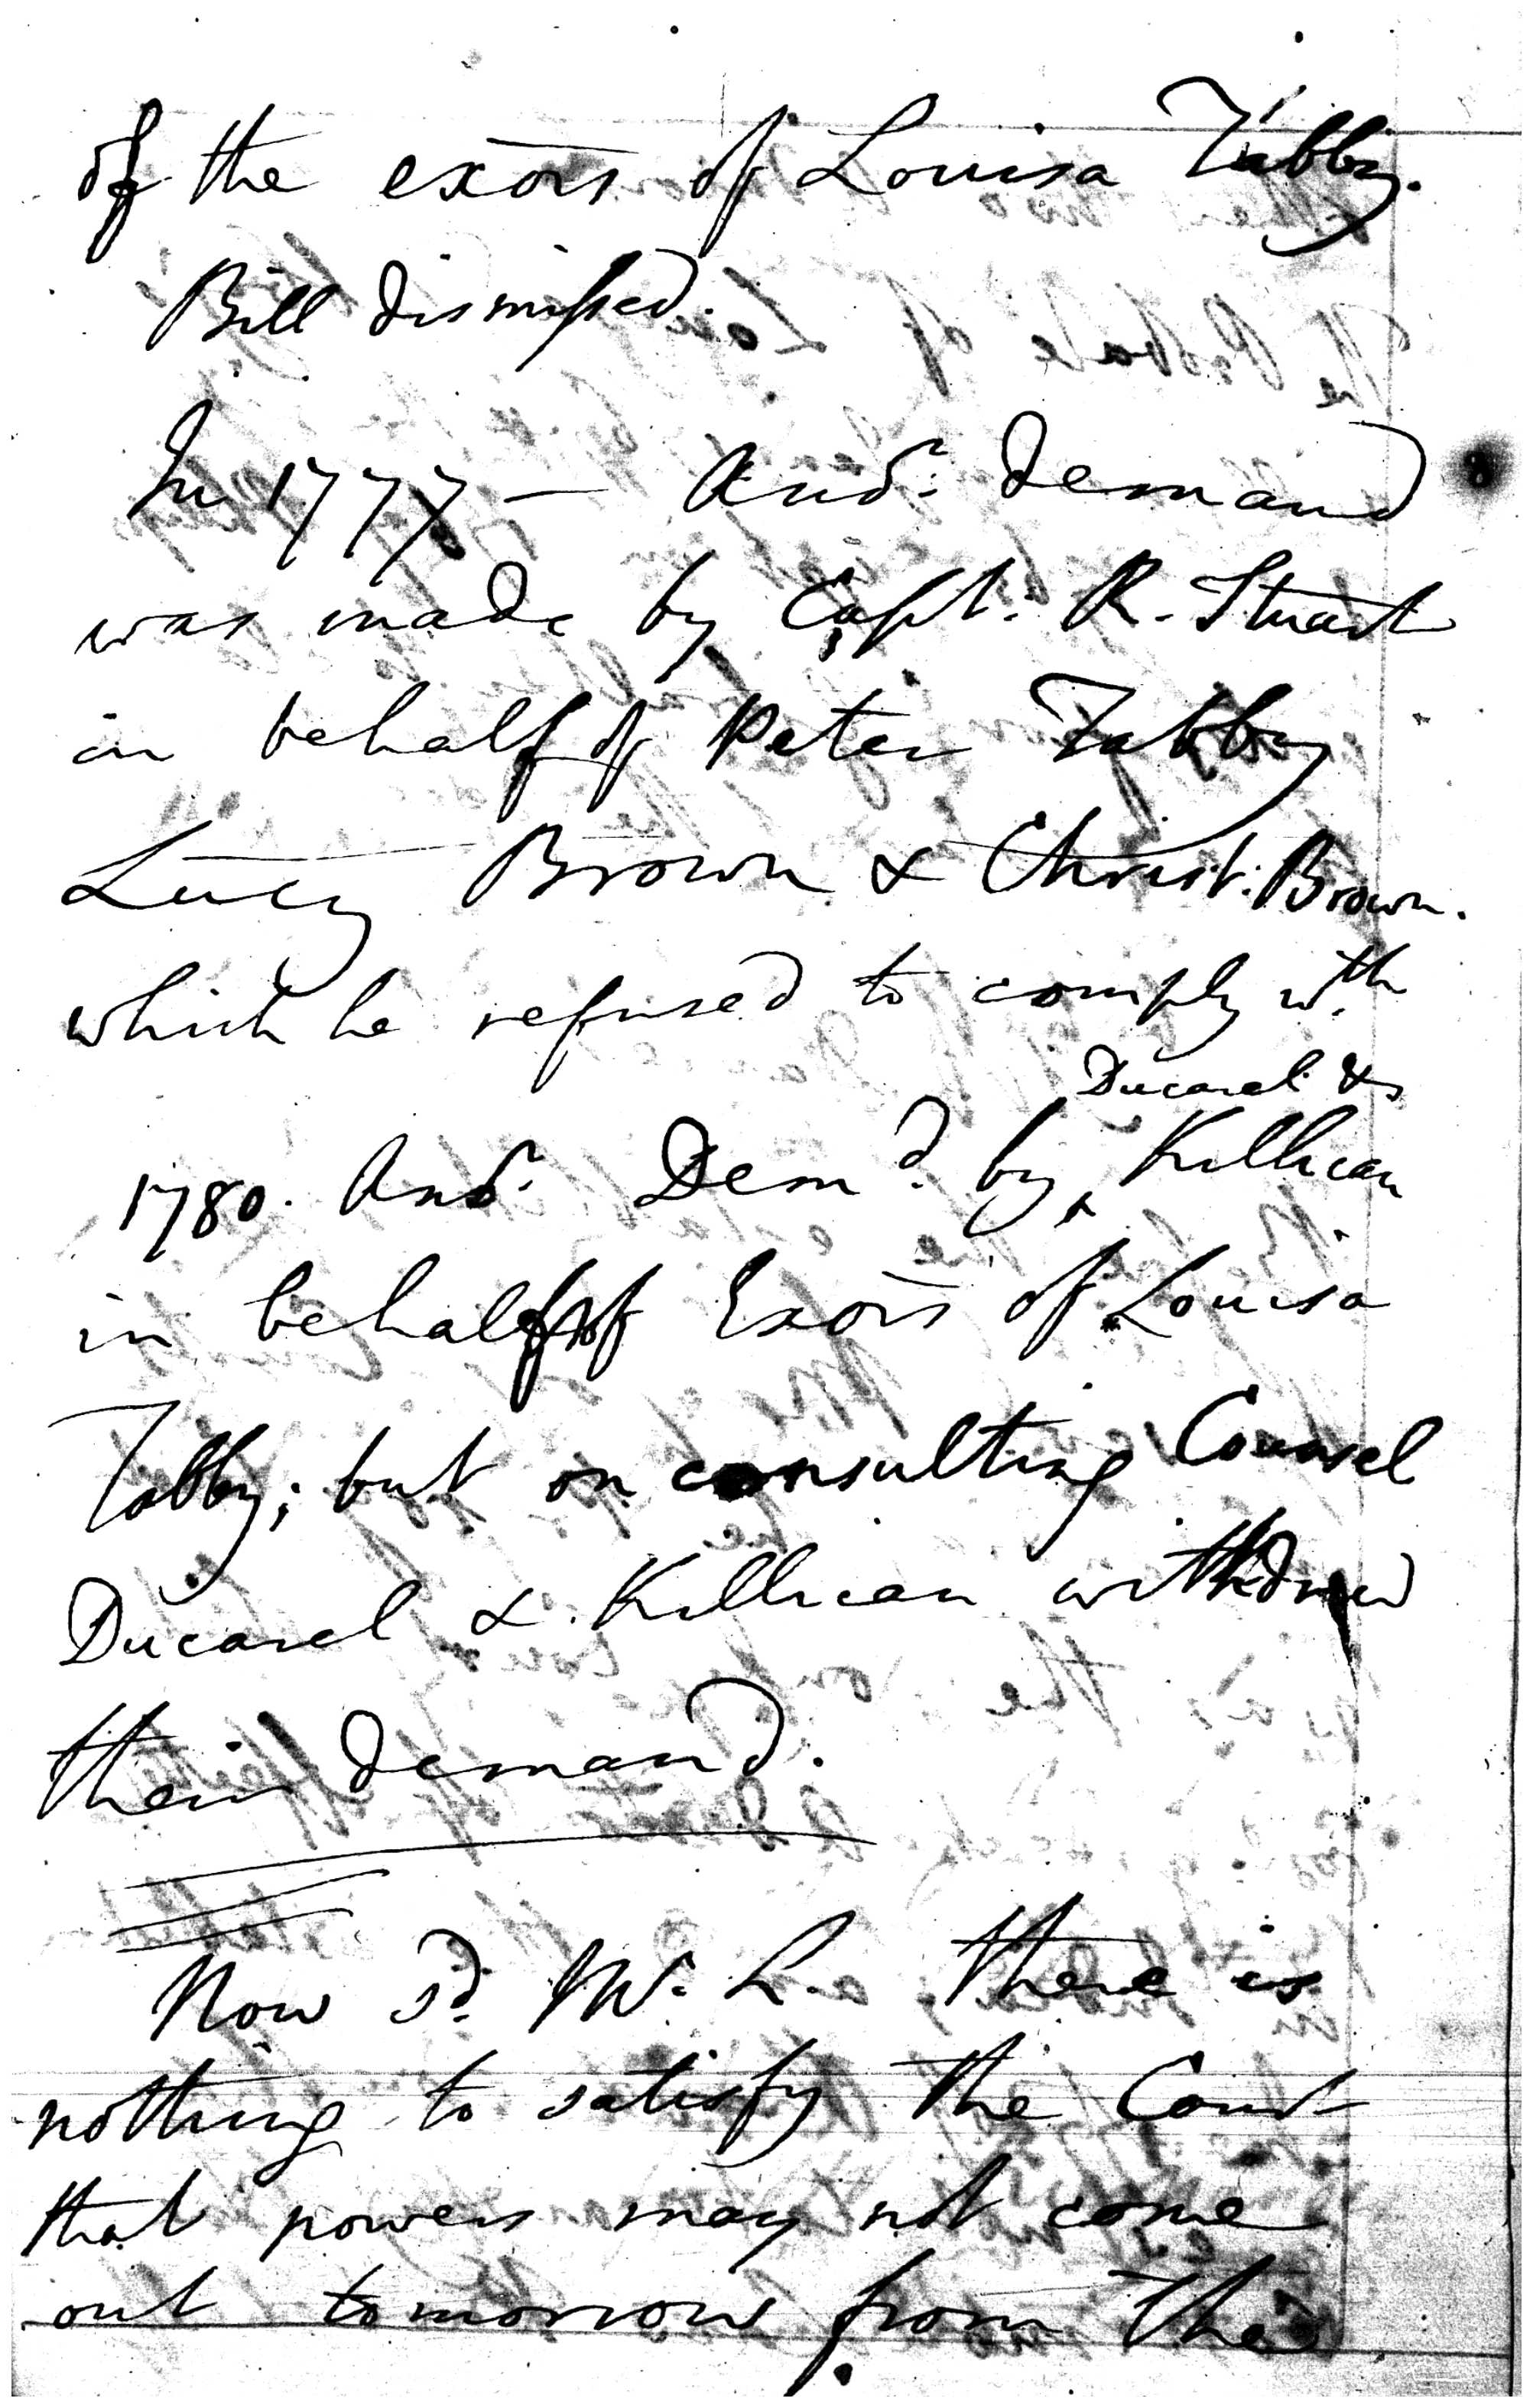 of the exors of Louisa Tabby.
Bill dismissed.
In 1777 — And. demand
was made by Capt. R. Stuart
in behalf of Peter Tabby
Lucy Brown & Christ. Brown.
which he refused to comply wth
Ducarel &
1780. And. Demd. by ^ Killican
in behalf of Exors of Louisa
Tabby; but on consulting Counsel
Ducarel & Killican withdrew
their demand.
Now sd. Mr. L. there is
nothing to satisfy the Court
that powers may not come
out tomorrow from the